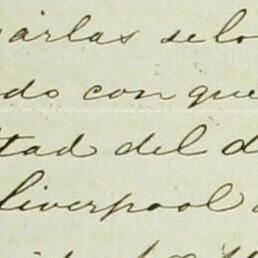 arlas se lo
do con que
tad del d
liverpool